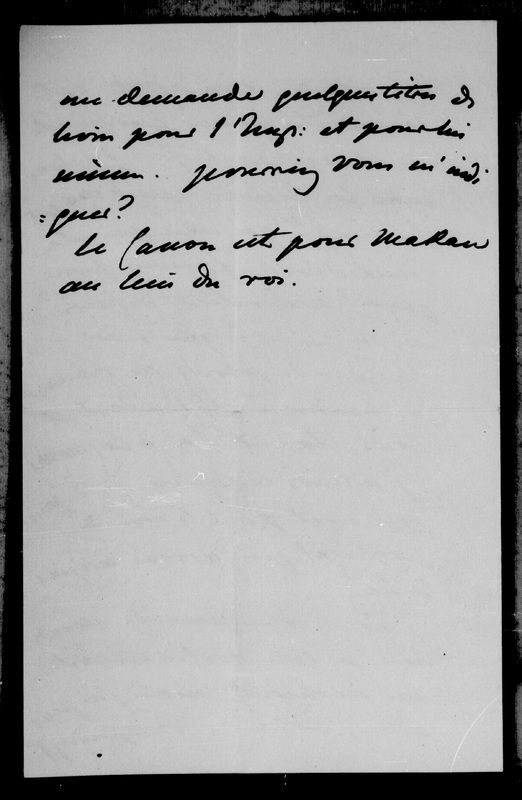 me demande quelques titres de
livres pour l'Imp: et pour lui
même. pourriez vous m'indi
=quer?
le Canon est pour Makau
au lieu du roi.